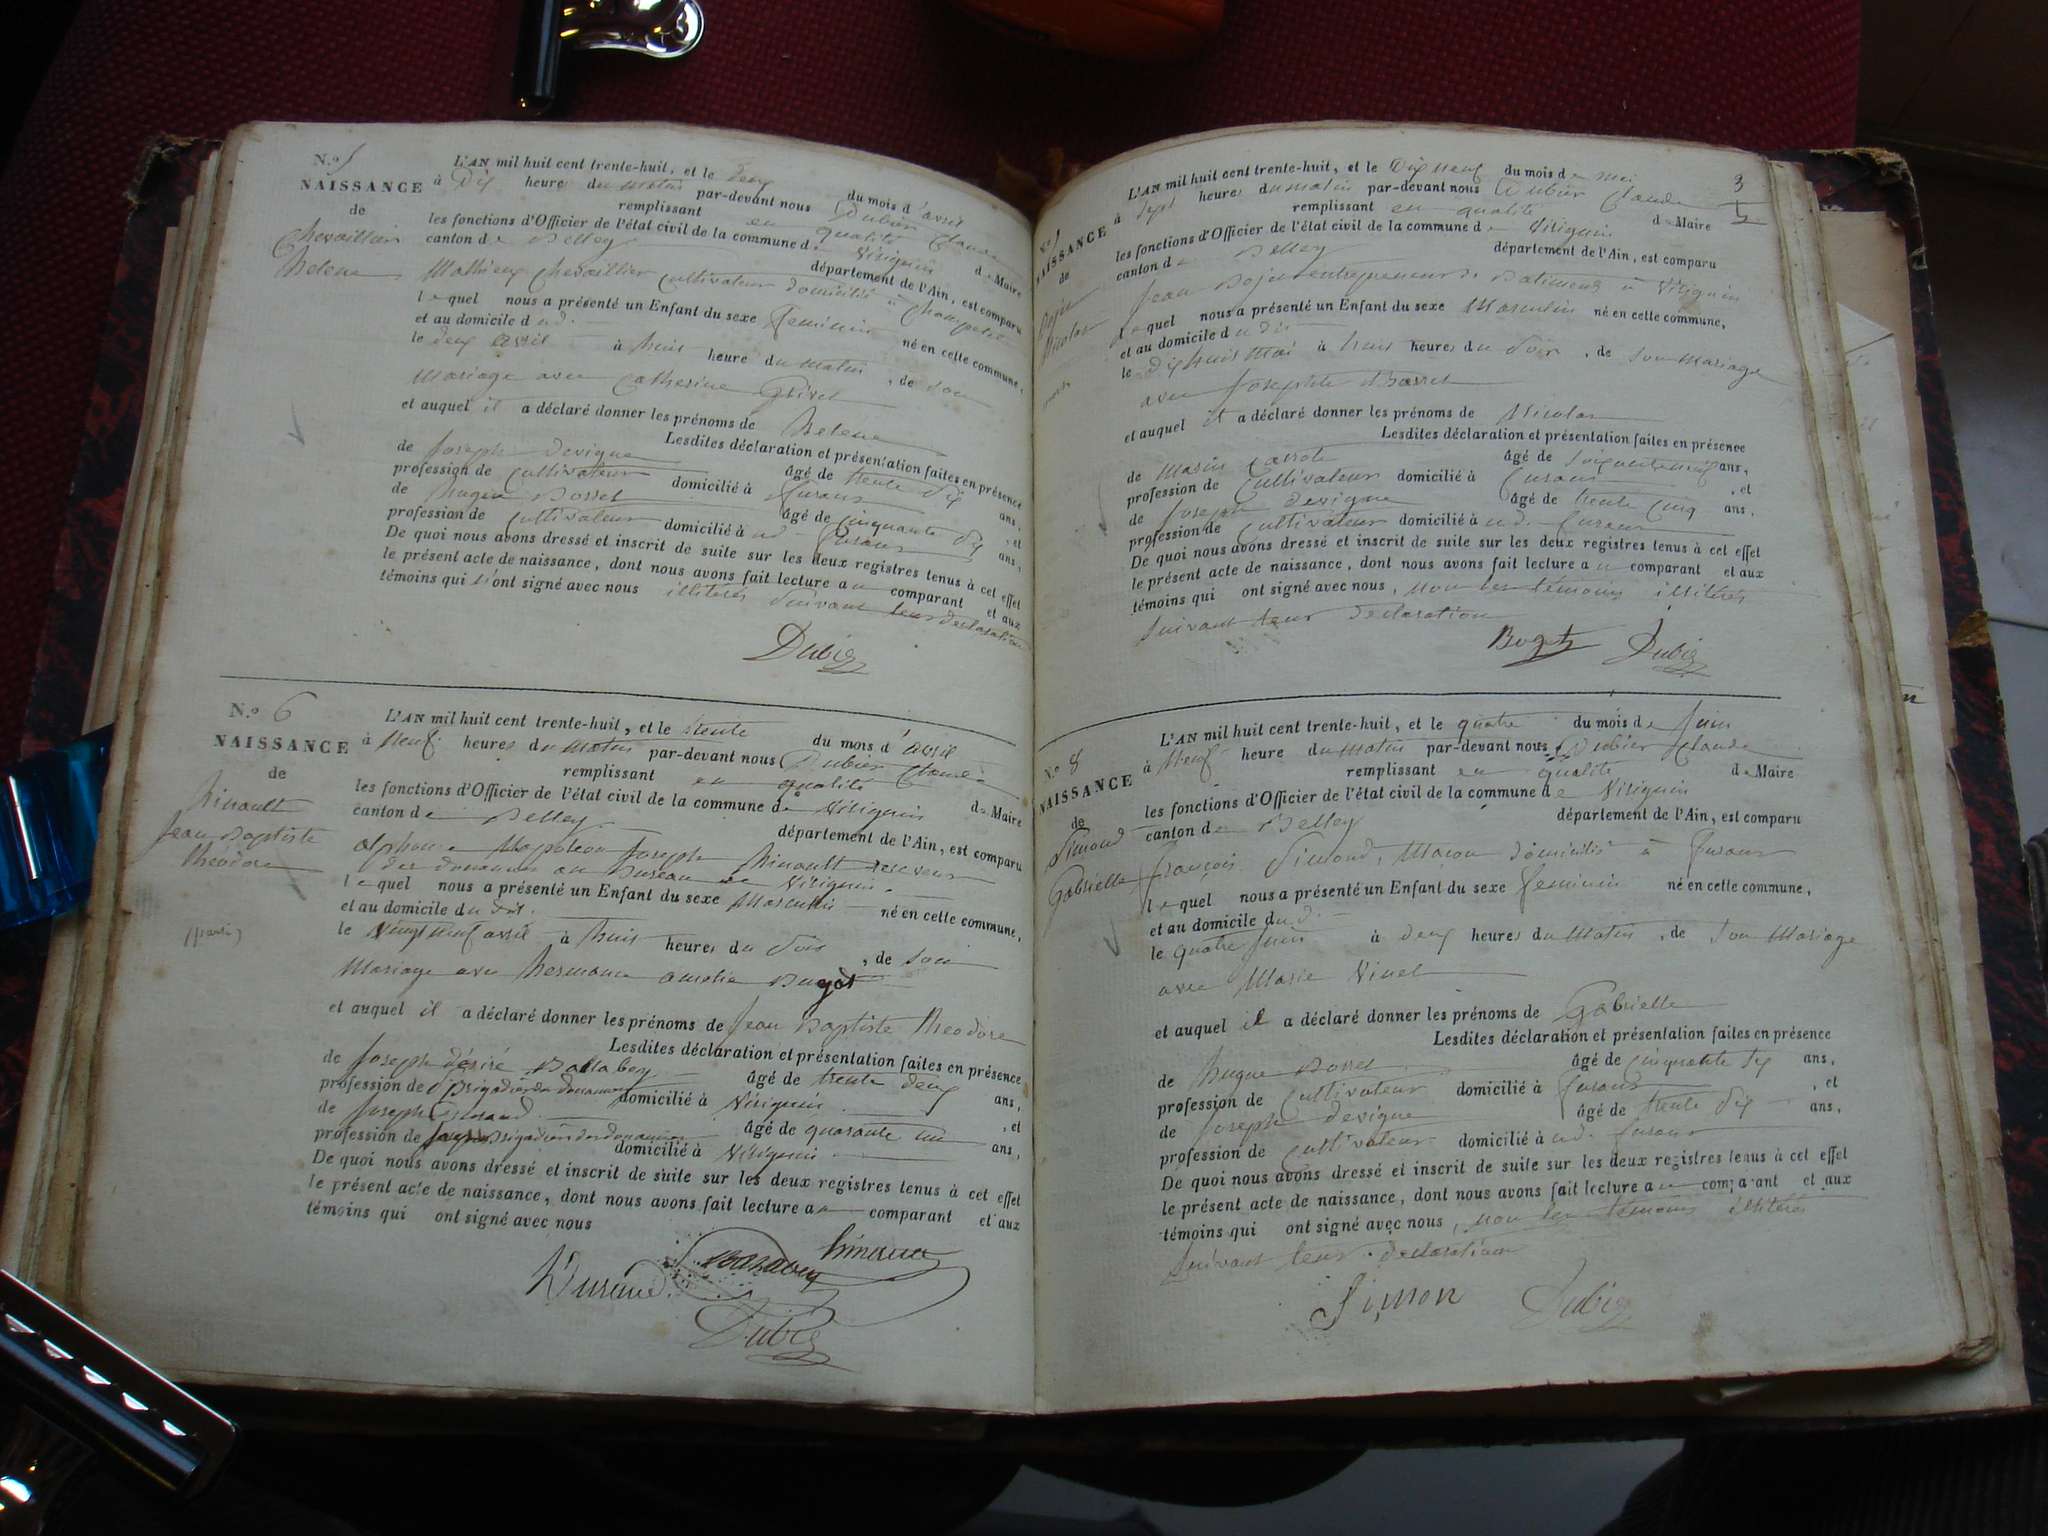 N.º 5
NAISSANCE
de
Chevaillier
helene
L'AN mil huit cent trente-huit, et le Deux du mois d'avril
à Dix heures du matin par-devant nous Dubier Claude
remplissant en qualité de Maire
les fonctions d'Officier de l'état civil de la commune de Virignin
canton de Belley département de l'Ain, est comparu
Mathieu Chevaillier Cultivateur domicilié à
lequel nous a présenté un Enfant du sexe feminin né en cette commune,
et au domicile dud.
le deux avril à huit heure du matin, de son
Mariage avec Catherine Grivel
et auquel il a déclaré donner les prénoms de helene
Lesdites déclaration et présentation faites en présence
de Joseph Devigne âgé de trente Six ans,
profession de Cultivateur domicilié à Furans, et
de hugue Bosset âgé de Cinquante dix ans,
profession de Cultivateur domicilié à ud Furans
De quoi nous avons dressé et inscrit de suite sur les deux registres tenus à cet effet
le présent acte de naissance, dont nous avons fait lecture au comparant et aux
témoins qui n'ont signé avec nous illiterés Suivant leur declaration
Dubier
N.º 6
NAISSANCE
de
hinault
Jean Baptiste
theodore
L'AN mil huit cent trente-huit, et le trente du mois d'avril
à Neuf heures du matin par-devant nous Dubier Claude
remplissant en qualité de Maire
les fonctions d'Officier de l'état civil de la commune de Virignin
canton de Belley département de l'Ain, est comparu
alphonse Napoleon Joseph hinault receveur
des douannes au Bureau de Virignin.
lequel nous a présenté un Enfant du sexe Masculin né en cette commune,
et au domicile du dit.
le Vingt neuf avril à huit heures du Soir, de Son
Mariage avec hermance amelie Bugot
et auquel il a déclaré donner les prénoms de Jean Baptiste theodore
Lesdites déclaration et présentation faites en présence
de Joseph désiré Ballabey âgé de trente deux ans,
profession de Brigadier des douannes domicilié à Virignin, et
de Joseph Durand âgé de quarante un ans,
profession de Brigadier des douannes domicilié à Virignin
De quoi nous avons dressé et inscrit de suite sur les deux registres tenus à cet effet
le présent acte de naissance, dont nous avons fait lecture au comparant et aux
témoins qui ont signé avec nous
Durand Ballabey hinault
Dubier
3
N.º 7
NAISSANCE
de
Bojet
Nicolas
L'AN mil huit cent trente-huit, et le Dix Neuf du mois de mai
à Sept heures du matin par-devant nous Dubier Claude
remplissant en qualité de Maire
les fonctions d'Officier de l'état civil de la commune de Virignin
canton de Belley département de l'Ain, est comparu
Jean Bojet entrepreneur de Batiment à Virignin
lequel nous a présenté un Enfant du sexe Masculin né en cette commune,
et au domicile du dit
le dix huit Mai à huit heures du Soir, de Son Mariage
avec Josephte Barret
et auquel il a déclaré donner les prénoms de Nicolas
Lesdites déclaration et présentation faites en présence
de Marin âgé de ans,
profession de Cultivateur domicilié à Furans, et
de Joseph Devigne âgé de trente Cinq ans.
profession de Cultivateur domicilié à ud. Furans
De quoi nous avons dressé et inscrit de suite sur les deux registres tenus à cet effet
le présent acte de naissance, dont nous avons fait lecture au comparant et aux
témoins qui ont signé avec nous, non les témoins illiterés
Suivant leur declaration
Dubier
N.º 8
NAISSANCE
de
Simond
Gabrielle
L'AN mil huit cent trente-huit, et le quatre du mois de Juin
à Neuf heure du matin par-devant nous Dubier Claude
remplissant en qualité de Maire
les fonctions d'Officier de l'état civil de la commune de Virignin
canton de Belley département de l'Ain, est comparu
françois Simond, Maçon domicilié à Furans
lequel nous a présenté un Enfant du sexe feminin né en cette commune,
et au domicile dud.
le quatre Juin à deux heures du Matin, de Son Mariage
avec Marie Vinet
et auquel il a déclaré donner les prénoms de Gabrielle
Lesdites déclaration et présentation faites en présence
de hugue Bosset âgé de cinquante dix ans,
profession de Cultivateur domicilié à Furans, et
de Joseph devigne âgé de trente Six ans,
profession de Cultivateur domicilié à ud. Furans
De quoi nous avons dressé et inscrit de suite sur les deux registres tenus à cet effet
le présent acte de naissance, dont nous avons fait lecture au comparant et aux
témoins qui ont signé avec nous, non les témoins illiterés
Suivant leur declaration
Simon Dubier